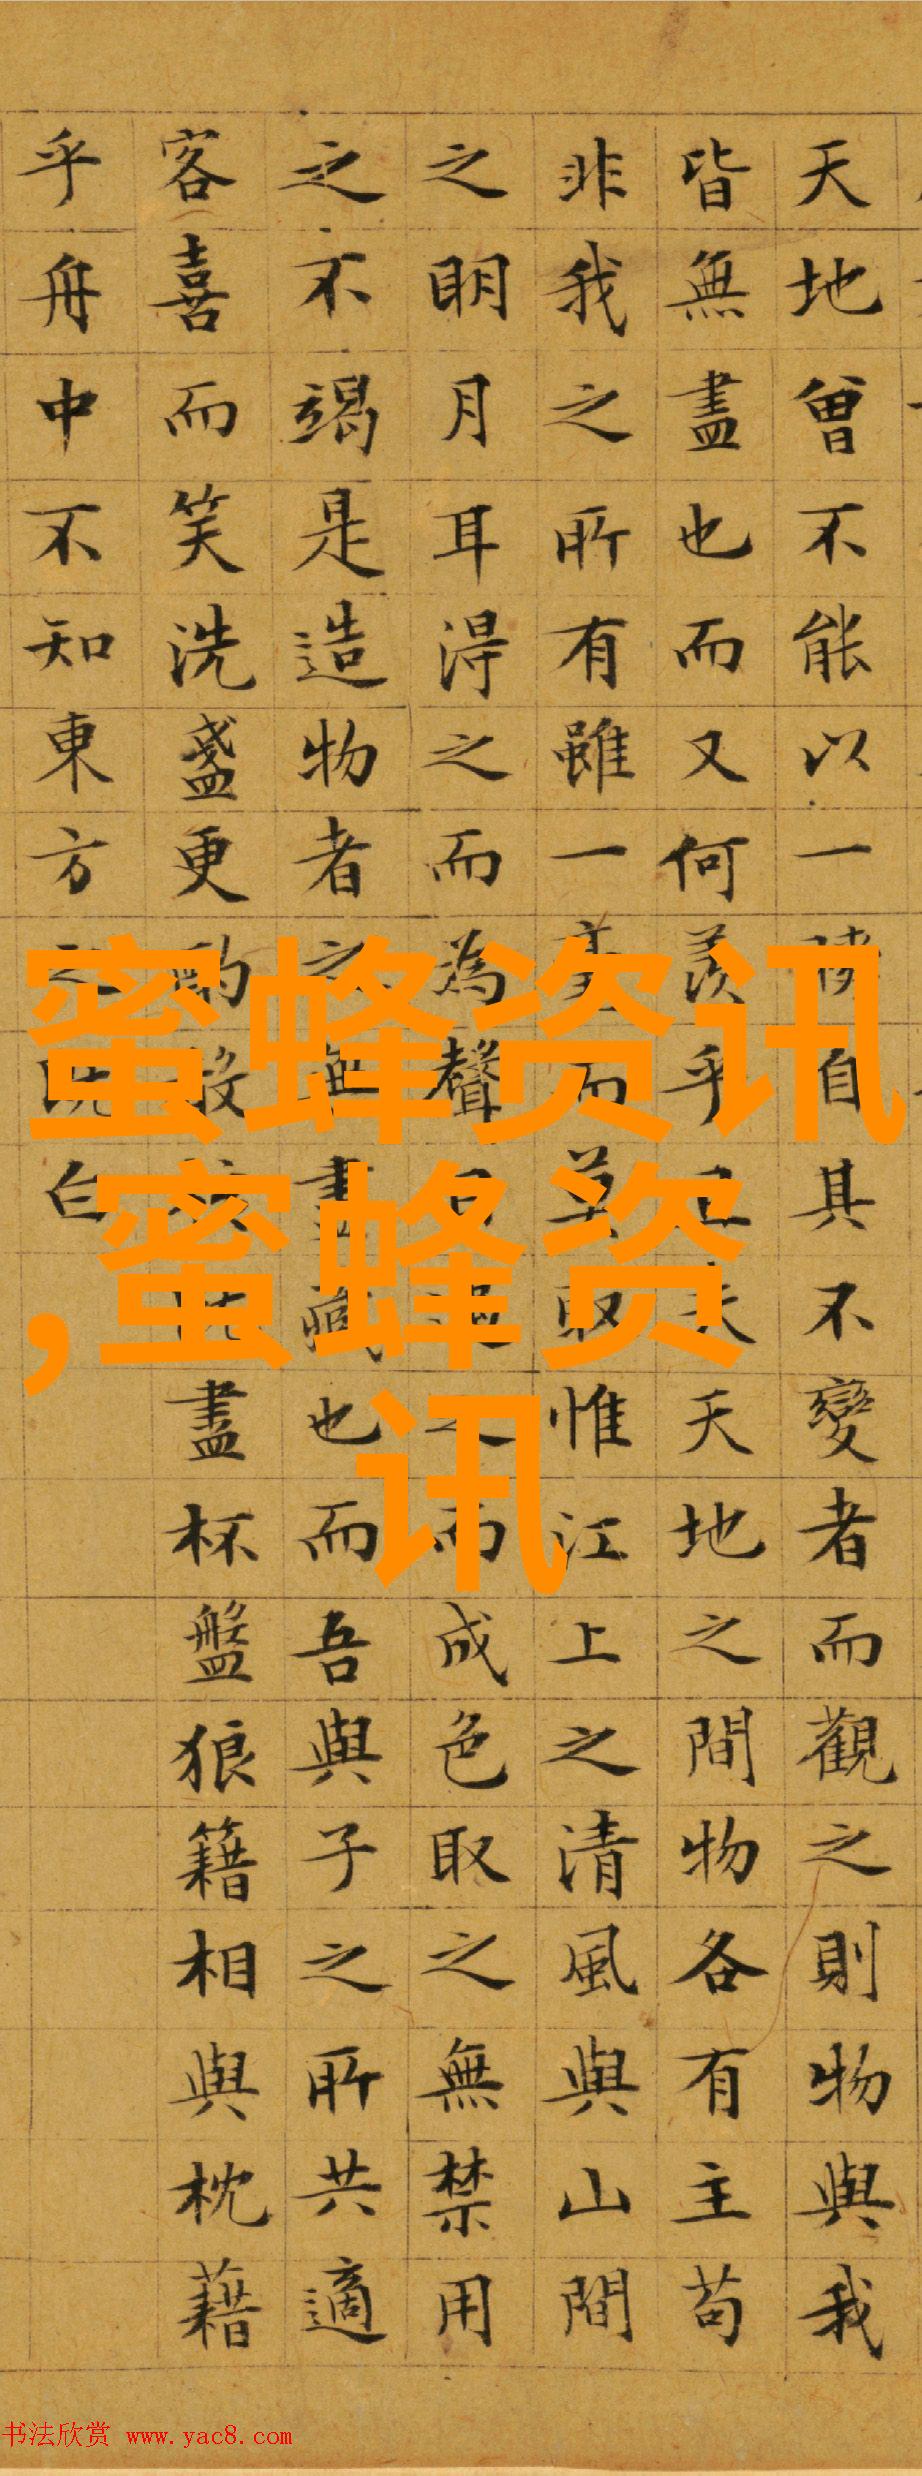 天地曾不能以一自具不變者而觀之則物與我
皆無盡也而又何羨乎夫天地之間物各有主苟
非我之所有雖一毫而取惟江上之清風與山間
之明月耳得之而為聲之而成色取之無禁用
之不竭是造物者之無盡藏也而吾與子之所共適
客喜而笑洗盞更酌盡杯盤狼籍相與枕藉
乎舟中不知東方之既白
蜜蜂资讯
,蜜蜂资
讯
书法欣赏 www.yac8.com